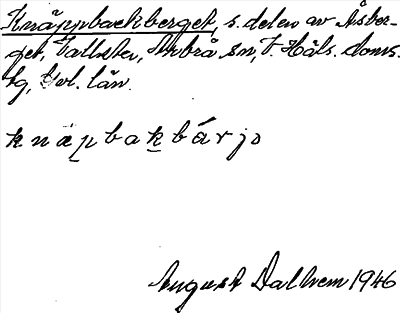 Knäppbackberget, s. delen av Åsber-
get, Vallsta, Arbrå sn, V. Häls. doms.
tg, Gvl. län.
knäpbakbárjo
August Dalhem 1946